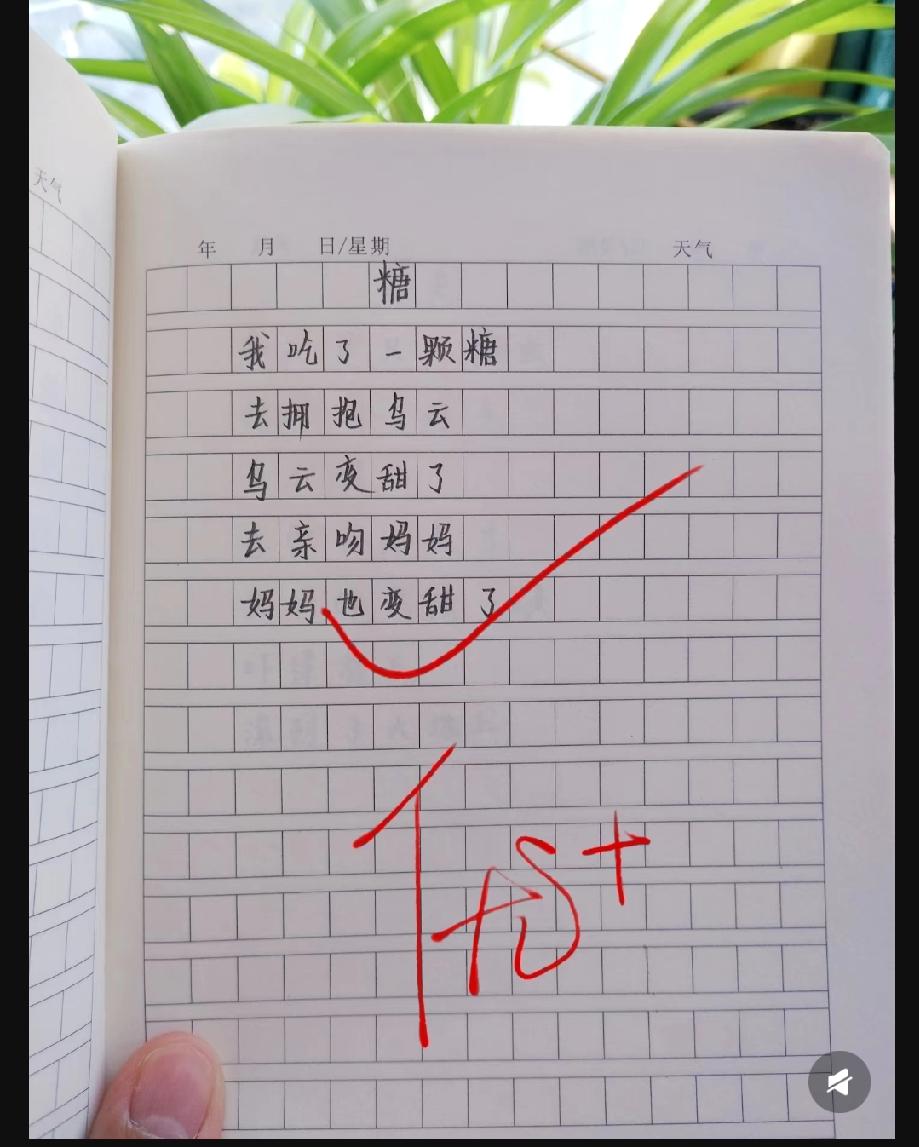 天气
年 月 日/星期 天气
糖
我吃了一颗糖
去拥抱乌云
乌云变甜了
去亲吻妈妈
妈妈也变甜了
优+